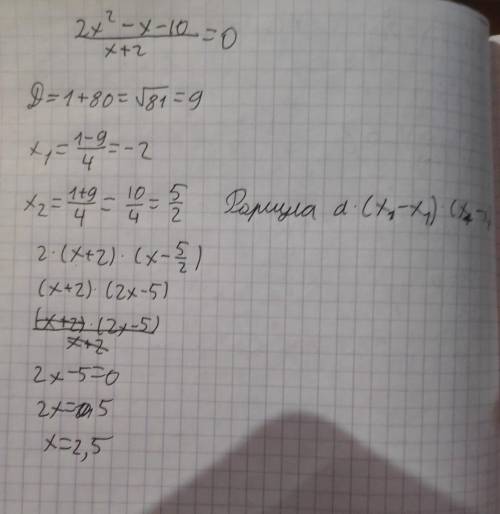 (2x² - x - 10)/(x+2) = 0
D = 1 + 80 = √81 = 9
x₁ = (1-9)/4 = -2
x₂ = (1+9)/4 = 10/4 = 5/2 Формула a·(x₁-x₁)·(x₂-x
2·(x+2)·(x-5/2)
(x+2)·(2x-5)
(x+2)·(2x-5)/(x+2)
2x-5=0
2x=5
x=2,5